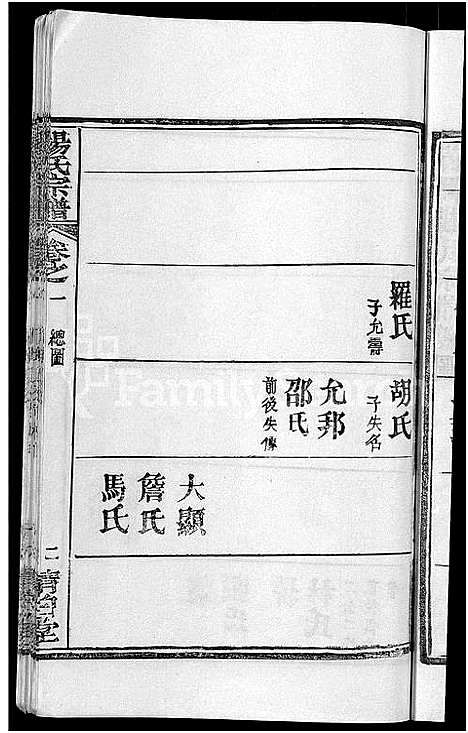 羅氏
子允壽
胡氏
子失名
允邦
邵氏
前後失傳
大顯
詹氏
馬氏
楊氏宗譜
卷之一
總圖
二
清白堂